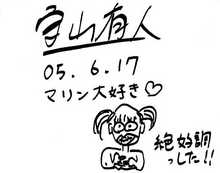 守山有人
05.6.17
マリン大好き♡
絶好調
っした!!